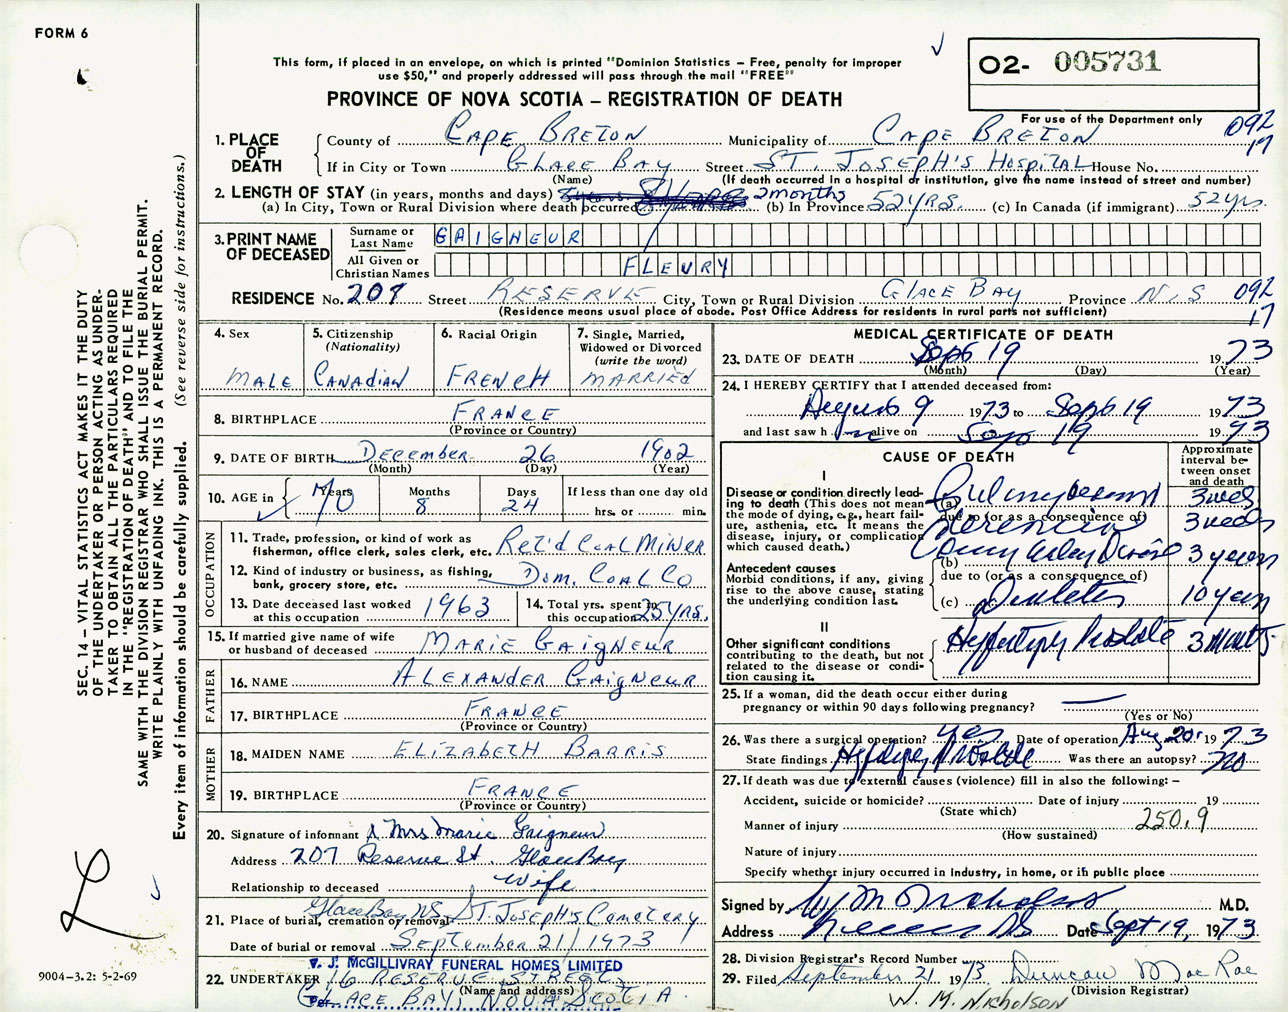 FORM 6
This form, if placed in an envelope, on which is printed "Dominion Statistics – Free, penalty for improper
use $50," and properly addressed will pass through the mail "FREE"
PROVINCE OF NOVA SCOTIA – REGISTRATION OF DEATH
O2- 005731
For use of the Department only
092
17
1. PLACE OF DEATH
County of CAPE BRETON Municipality of CAPE BRETON
If in City or Town GLACE BAY Street ST. JOSEPH'S HOSPITAL House No.
(Name) (If death occurred in a hospital or institution, give the name instead of street and number)
2. LENGTH OF STAY (in years, months and days) 2 months
(a) In City, Town or Rural Division where death occurred (b) In Province 52 yrs. (c) In Canada (if immigrant) 52 yrs.
3. PRINT NAME OF DECEASED
Surname or Last Name GAIGNEUR
All Given or Christian Names FLEURY
RESIDENCE No. 207 Street RESERVE City, Town or Rural Division GLACE BAY Province N.S 092
17
(Residence means usual place of abode. Post Office Address for residents in rural parts not sufficient)
4. Sex
MALE
5. Citizenship
(Nationality)
CANADIAN
6. Racial Origin
FRENCH
7. Single, Married,
Widowed or Divorced
(write the word)
MARRIED
8. BIRTHPLACE FRANCE
(Province or Country)
9. DATE OF BIRTH December 26 1902
(Month) (Day) (Year)
10. AGE in
Years
70
Months
8
Days
24
If less than one day old
hrs. or min.
OCCUPATION
11. Trade, profession, or kind of work as
fisherman, office clerk, sales clerk, etc. RET'D COAL MINER
12. Kind of industry or business, as fishing,
bank, grocery store, etc. DOM. COAL CO
13. Date deceased last worked
at this occupation 1963
14. Total yrs. spent in
this occupation 25 YRS.
15. If married give name of wife
or husband of deceased MARIE GAIGNEUR
FATHER
16. NAME ALEXANDER GAIGNEUR
17. BIRTHPLACE FRANCE
(Province or Country)
MOTHER
18. MAIDEN NAME ELIZABETH BARRIS
19. BIRTHPLACE FRANCE
(Province or Country)
20. Signature of informant Mrs Marie Gaigneur
Address 207 Reserve St. Glace Bay
Relationship to deceased wife
21. Place of burial, cremation or removal Glace Bay NS ST JOSEPH'S CEMETERY
Date of burial or removal September 21/1973
22. UNDERTAKER V. J. McGILLIVRAY FUNERAL HOMES LIMITED
16 RESERVE STREET
(Name and address)
Per. GLACE BAY, NOVA SCOTIA
MEDICAL CERTIFICATE OF DEATH
23. DATE OF DEATH Sept 19 1973
(Month) (Day) (Year)
24. I HEREBY CERTIFY that I attended deceased from:
August 9 1973 to Sept 19 1973
and last saw h im alive on Sept 19 1973
CAUSE OF DEATH
Approximate
interval be-
tween onset
and death
I
Disease or condition directly lead-
ing to death (This does not mean
the mode of dying, e.g., heart fail-
ure, asthenia, etc. It means the
disease, injury, or complication
which caused death.)
(a) 3 weeks
due to (or as a consequence of) 3 weeks
Antecedent causes
Morbid conditions, if any, giving
rise to the above cause, stating
the underlying condition last.
(b) 3 years
due to (or as a consequence of)
(c) Diabetes 10 years
II
Other significant conditions
contributing to the death, but not
related to the disease or condi-
tion causing it.
Prostate 3 Months
25. If a woman, did the death occur either during
pregnancy or within 90 days following pregnancy?
(Yes or No)
26. Was there a surgical operation? Yes Date of operation Aug 20, 1973
State findings Prostate Was there an autopsy? no
27. If death was due to external causes (violence) fill in also the following: –
Accident, suicide or homicide? Date of injury 19
(State which)
Manner of injury 250.9
(How sustained)
Nature of injury
Specify whether injury occurred in industry, in home, or in public place
Signed by W M Nicholson M.D.
Address NS Date Sept 19, 1973
28. Division Registrar's Record Number
29. Filed September 21 1973 Duncan MacRae
(Division Registrar)
W. M. NICHOLSON
SEC. 14 – VITAL STATISTICS ACT MAKES IT THE DUTY
OF THE UNDERTAKER OR PERSON ACTING AS UNDER-
TAKER TO OBTAIN ALL THE PARTICULARS REQUIRED
IN THE "REGISTRATION OF DEATH" AND TO FILE THE
SAME WITH THE DIVISION REGISTRAR WHO SHALL ISSUE THE BURIAL PERMIT.
WRITE PLAINLY WITH UNFADING INK. THIS IS A PERMANENT RECORD.
Every item of information should be carefully supplied. (See reverse side for instructions.)
9004-3.2: 5-2-69